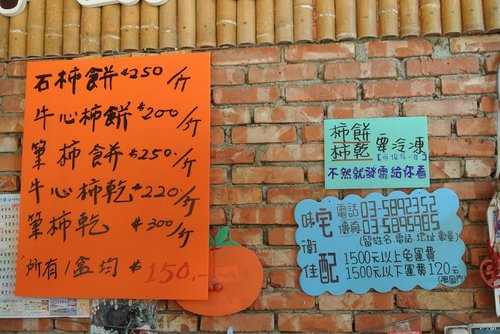 石柿餅$250/斤
牛心柿餅$200/斤
筆柿餅$250/斤
牛心柿乾$220/斤
筆柿乾$300/斤
所有1盒均$150.-
柿餅
柿乾 要冷凍
不然就發霉給你看
味衛佳
宅配
電話 03-5892352
傳真 03-5895985
(留姓名.電話.地址.數量)
1500元以上免運費
1500元以下運費120元